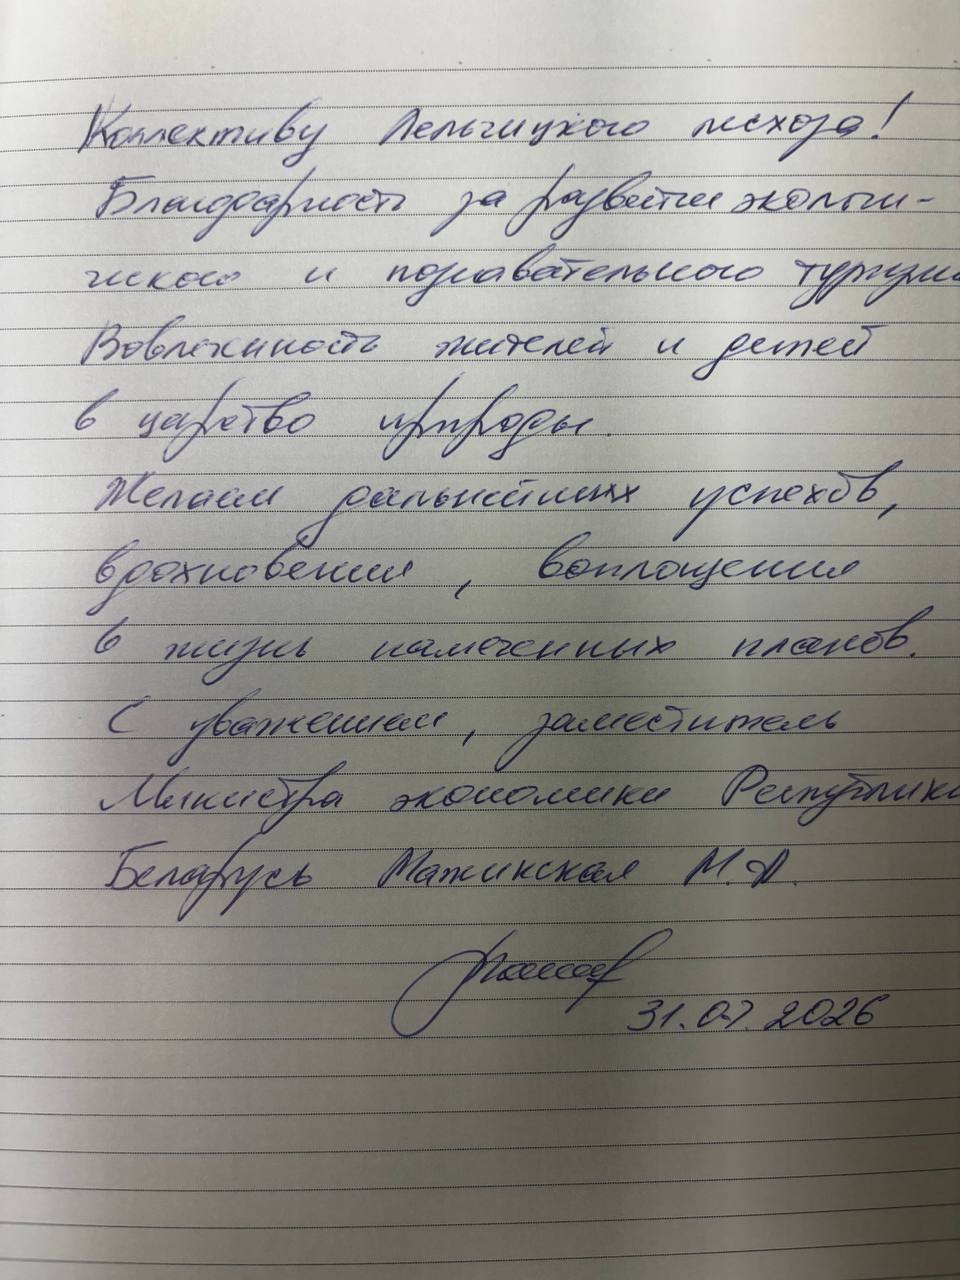 Коллективу Лельчицкого лесхоза!
Благодарность за развитие экологи-
ческого и познавательного туризма
Вовлеченность жителей и детей
в царство природы.
Желаем дальнейших успехов,
вдохновения, воплощения
в жизнь намеченных планов.
С уважением, заместитель
Министра экономики Республики
Беларусь Мажинская М.А.
31.07.2026